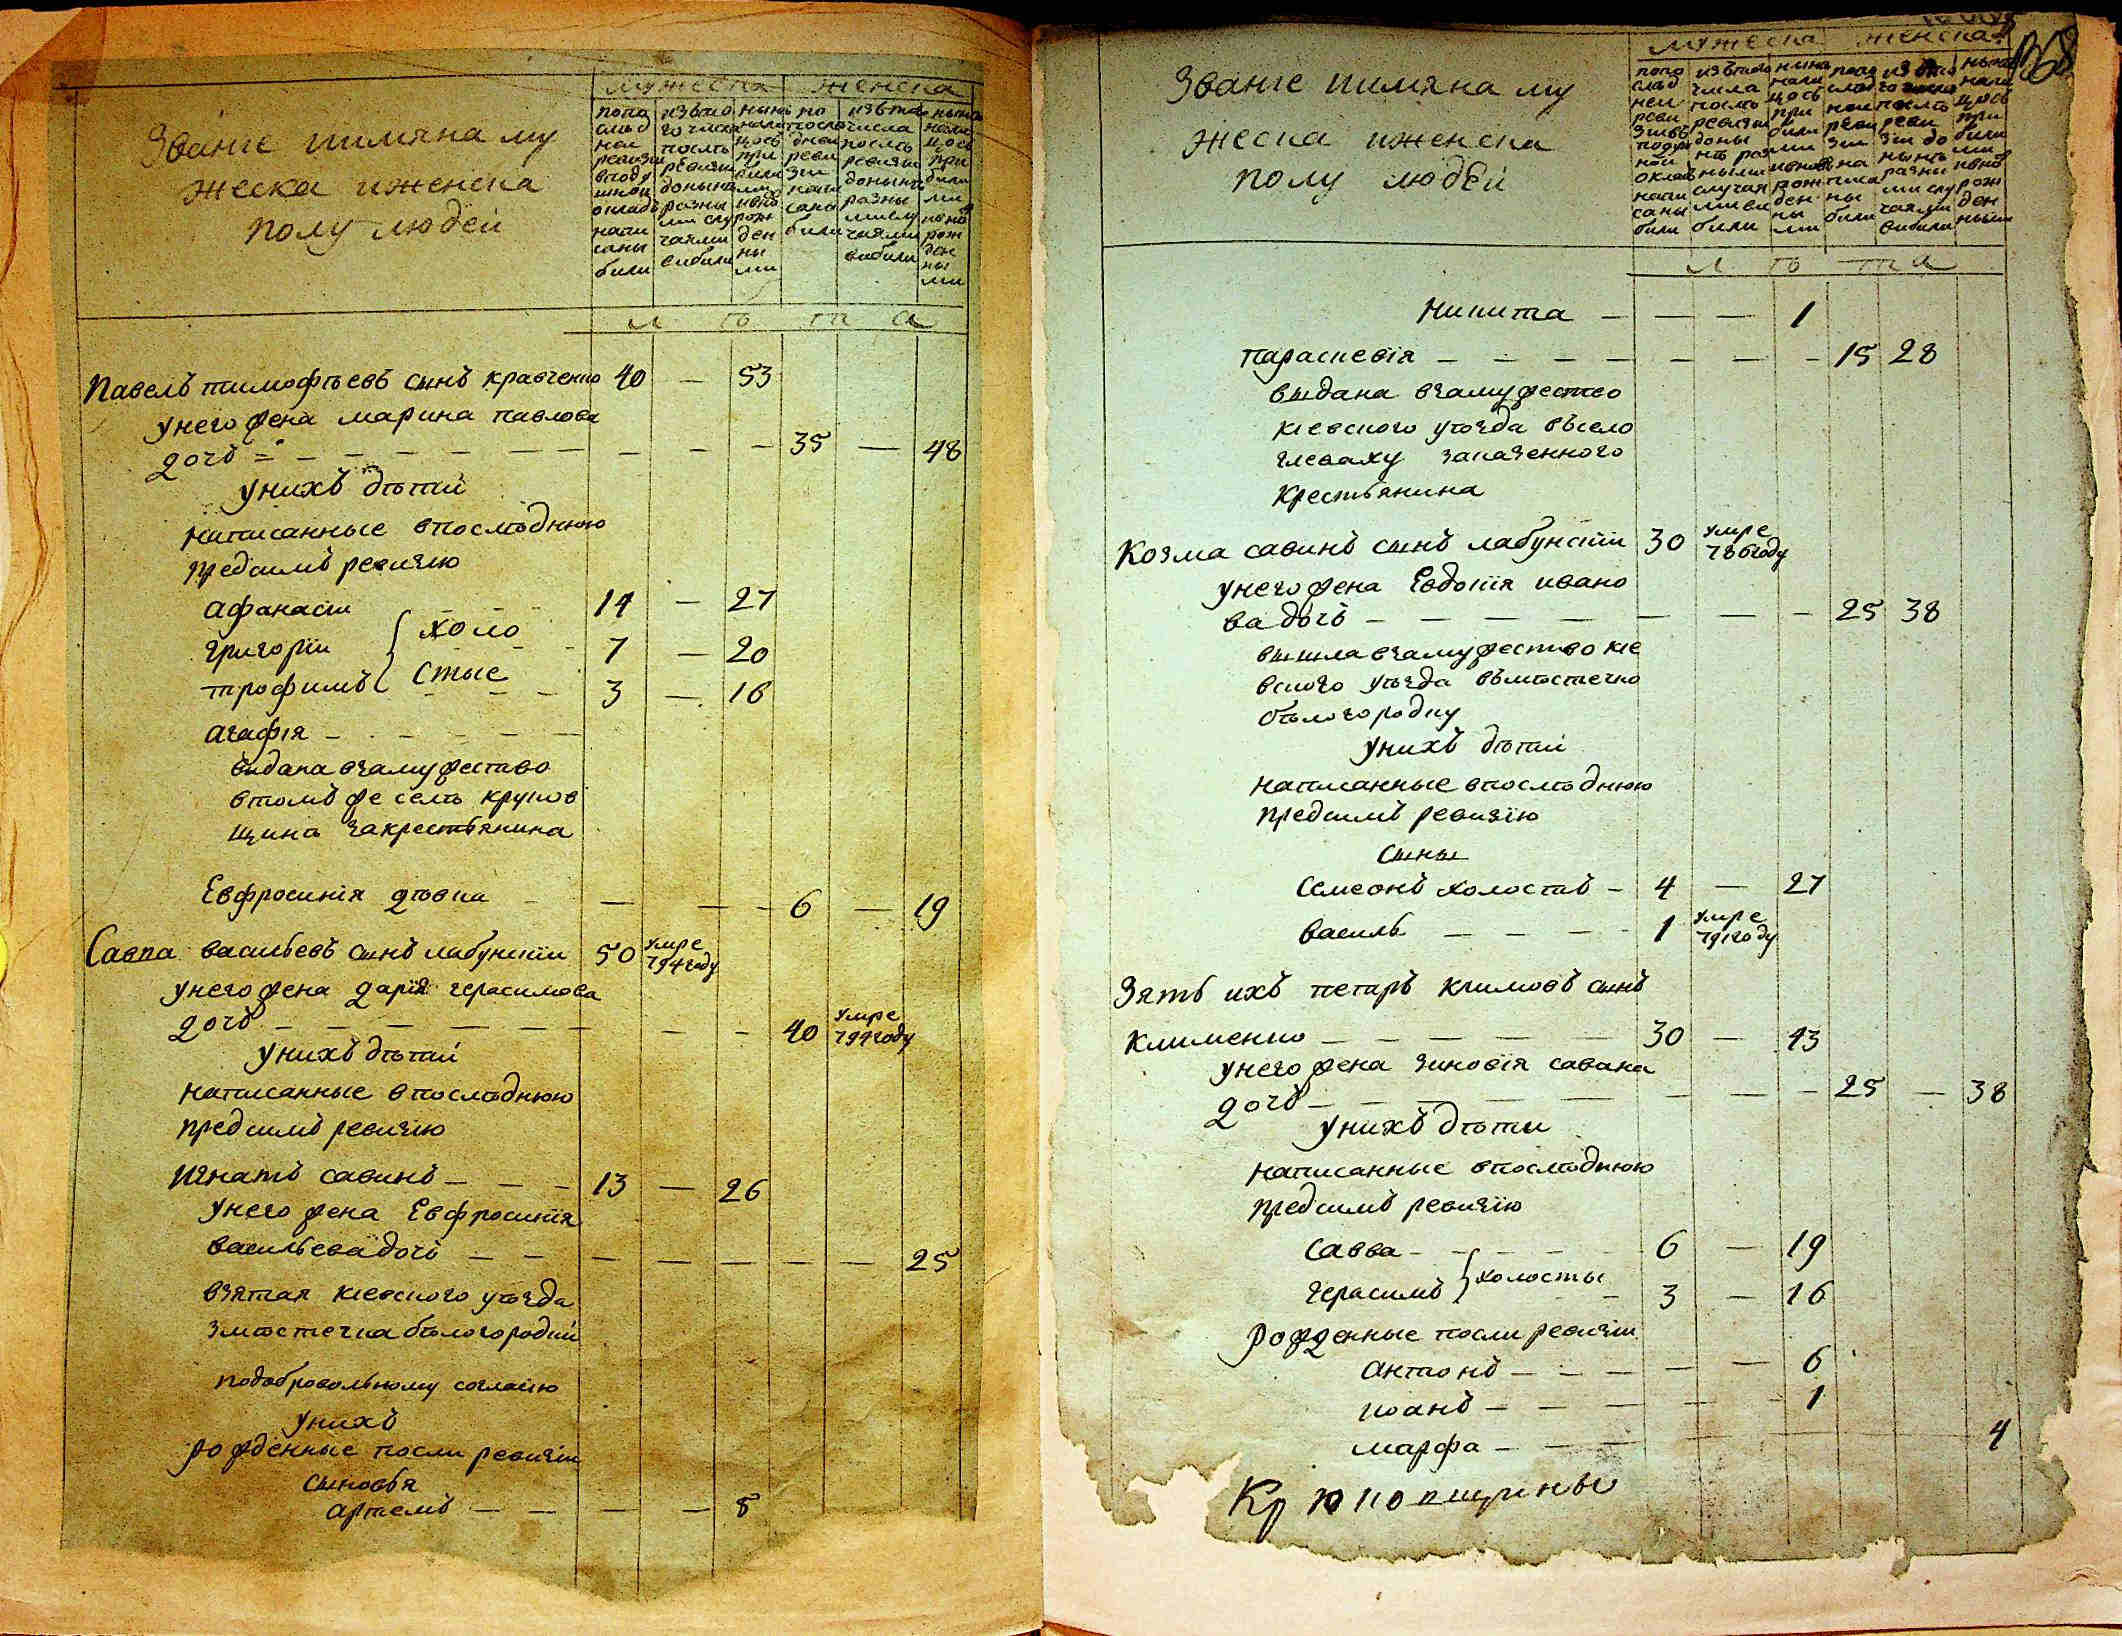 Званіе иимяна му
жеска иженска
полу людей
мужеска женска
попо
след
ней
ревизіи
вподу
шной
окладъ
напи
саны
били
изъто
го числа
послѣ
ревизіи
донынѣ
разны
ми слу
чаями
вибили
нынѣ
нали
цось
при
били
ми
ивно
рож
ден
ны
ми
по
посло
дней
реви
зіи
напи
сани
били
изъто
числа
послѣ
ревизіи
донынѣ
разны
мислу
чаями
вибили
нынѣ
нали
цось
при
били
ми
ивно
рож
ден
ны
ми
л ѣ т а
Павелъ тимофѣевъ сынъ кравченко 40 — 53
унего жена марина павлова
дочь — — — — — — — — — 35 — 48
унихъ дѣтей
написанные впослѣднюю
предсимъ ревизію
афанасіи 14 — 27
григоріи { холо 7 — 20
трофимъ { стые 3 — 16
агафія — — — — —
выдана взамужество
втомъ же селѣ круков
щинѣ закрестьянина
Евфросинія дѣвка — — — 6 — 19
Савва васильевъ сынъ лабунскіи 50 умре
794 году
унего жена дарія герасимова
дочь — — — — — — — — 40 умре
794 году
унихъ дѣтей
написанные впослѣднюю
предсимъ ревизію
игнатъ савинъ — — — 13 — 26
унего жена Евфросинія
васильева дочь — — — — — — — 25
взятая кіевского уѣзда
змѣстечка бѣлогородки
подобровольному согласію
унихъ
рожденные посли ревизіи
сыновья
артемъ — — — — 8
168
Званіе иимяна му
жеска иженска
полу людей
мужеска женска
попо
след
ней
реви
зіивъ
подуш
ной
окладъ
напи
саны
били
изътого
числа
послѣ
ревизіи
доны
нѣ разны
ными
случая
ми ви
били
нынѣ
нали
цось
при
били
ми
ивно
рож
ден
ны
ми
попо
слѣд
ней
реви
зіи
на
писа
ны
били
изъто
го числа
послѣ
реви
зіи до
нынѣ
разны
ми слу
чаями
вибили
нынѣ
нали
цось
при
били
ми
ивно
рож
ден
ными
л ѣ т а
никита — — — — 1
параскевія — — — — — — — — 15 28
выдана взамужество
кіевского уѣзда въсело
глеваху заказенного
крестьянина
Козма савинъ сынъ лабунскіи 30 умре
786 году
унего жена Евдокія ивано
ва дочь — — — — — — — — 25 38
вишла взамужество кіе
вского уѣзда вѣмѣстечко
бѣлогородку
унихъ дѣтей
написанные впослѣднюю
предсимъ ревизію
сыны
семеонъ холостъ — 4 — 27
василь — — — — 1 умре
791 году
Зять ихъ петръ климовъ сынъ
клименко — — — — — 30 — 43
унего жена зиновія савина
дочь — — — — — — — — 25 — 38
унихъ дѣти
написанные впослѣднюю
предсимъ ревизію
савва — — — — — 6 — 19
герасимъ { холосты — 3 — 16
рожденные посли ревизіи
антонъ — — — — — 6
иоанъ — — — — — 1
марфа — — — — — — — — 4